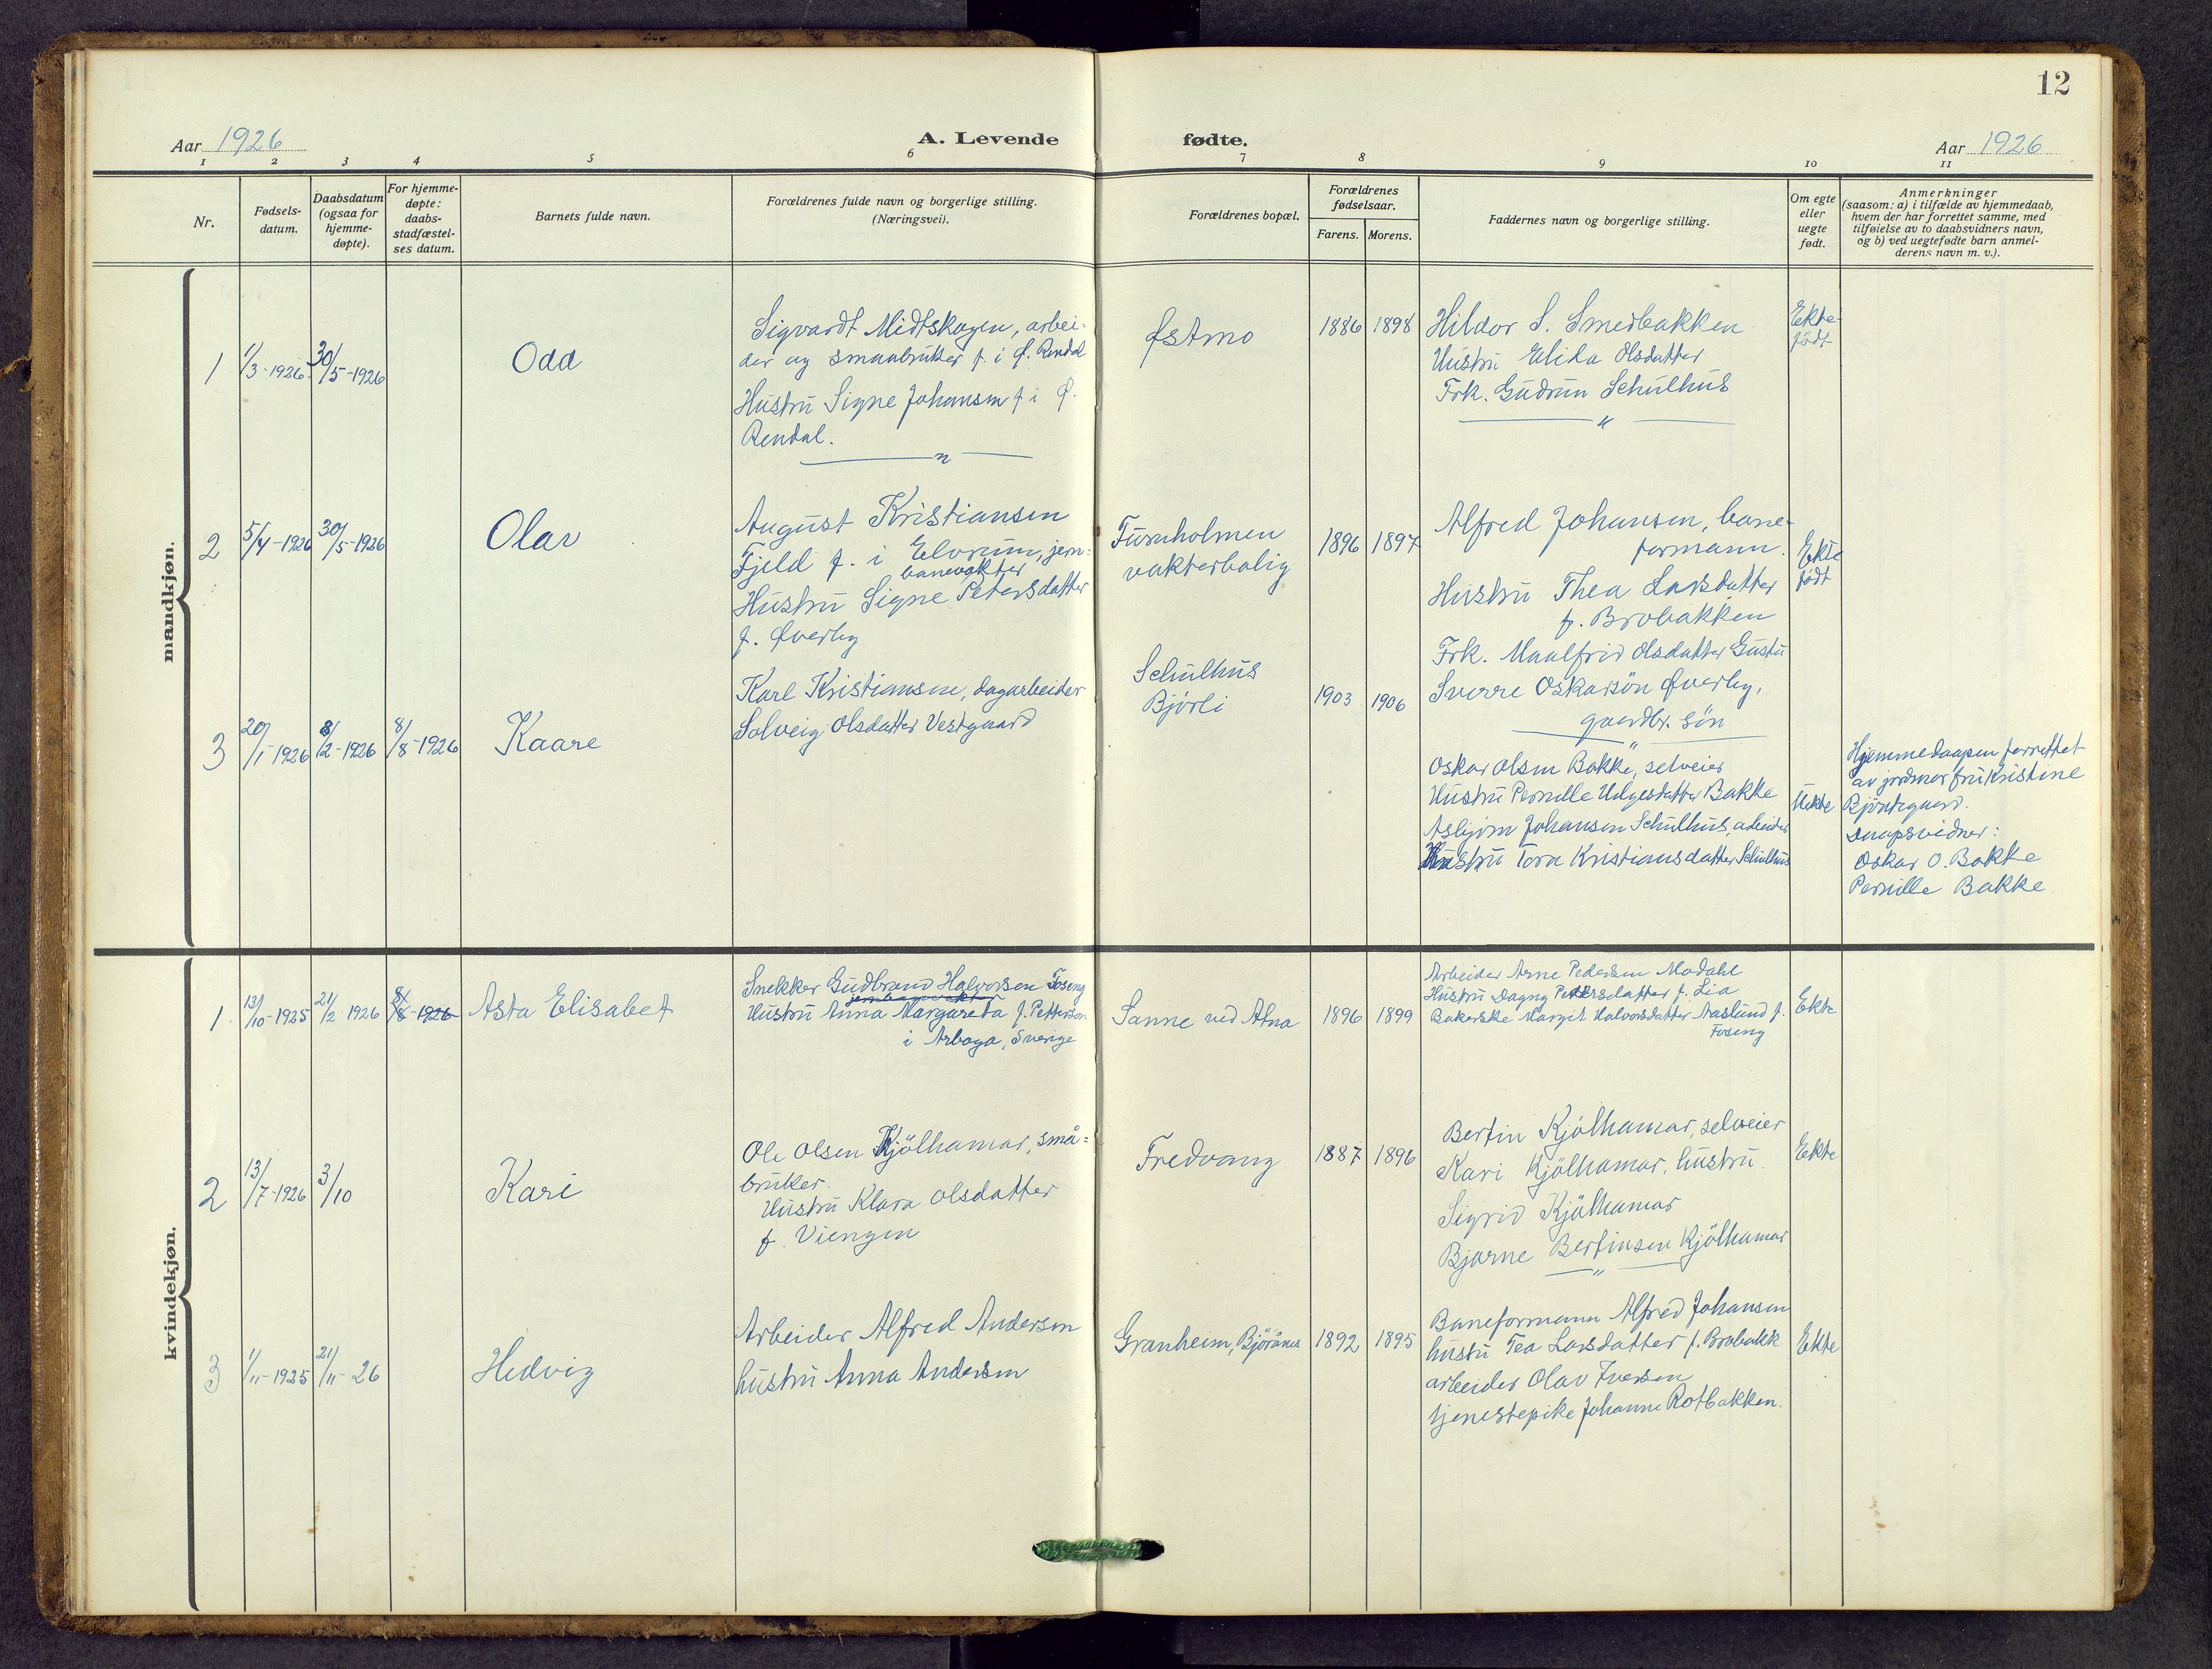 12
Aar 1926
A. Levende fødte.
Aar 1926
1 2 3 4 5 6 7 8 9 10 11
Nr.
Fødsels-
datum.
Daabsdatum
(ogsaa for
hjemme-
døpte).
For hjemme-
døpte:
daabs-
stadfæstel-
ses datum.
Barnets fulde navn.
Forældrenes fulde navn og borgerlige stilling.
(Næringsvei).
Forældrenes bopæl.
Forældrenes
fødselsaar.
Farens. Morens.
Faddernes navn og borgerlige stilling.
Om egte
eller
uegte
født.
Anmerkninger
(saasom: a) i tilfælde av hjemmedaab,
hvem der har forrettet samme, med
tilføielse av to daabsvidners navn,
og b) ved uegtefødte barn anmel-
derens navn m. v.).
mandkjøn.
1 1/3-1926 30/5-1926
Odd
Sigvardt Midtskogen, arbei-
der og smaabruker f. i Ø. Rendal
Hustru Signe Johansen f i Ø.
Rendal.
Østmo
1886 1898
Hildor S. Smedbakken
Hustru Elida Olsdatter
Frk. Gudrun Schulhus
Ekte-
født
2 5/4-1926 30/5-1926
Olav
August Kristiansen
Fjeld f. i Elvrum, jern-
banevokter
Hustru Signe Petersdatter
f. Øverby
Furuholmen
vakterbolig
1896 1897
Alfred Johansen, bane-
formann.
Hustru Thea Larsdatter
f. Brobakken
Frk. Maalfrid Olsdatter Gustu
Sverre Oskarsön Øverby,
gaardbr. sön
Ekte
født
3 20/1-1926 8/2-1926 8/8-1926
Kaare
Karl Kristiansen, dagarbeider
Solveig Olsdatter Vestgaard
Schulhus
Bjórli
1903 1906
Oskar Olsen Bakke, selveier
Hustru Pernille Helgesdatter Bakke
Asbjörn Johansen Schulhus, arbeider
Hustru Tora Kristiansdatter Schulhus
Uekte
Hjemmedaapen forrettet
av jordmor fru Kristine
Daapsvidner:
Oskar O. Bakke
Pernille Bakke
kvindekjøn.
1 13/10-1925 21/2 1926 8/8-1926
Asta Elisabet
Snekker Gudbrand Halvorsen Foseng
jernbanevokter
Hustru Anna Margareta f. Petterson
i Arboga, Sverige
Sanne ved Atna
1896 1899
Arbeider Arne Pedersen Modahl
Hustru Dagny Petersdatter f. Lia
Bakerske Margit Halvorsdatter Aaslund f.
Foseng
Ekte
2 13/7-1926 3/10
Kari
Ole Olsen Kjölhamar, små-
bruker.
Hustru Klara Olsdatter
f. Viengen
Fredvang
1887 1896
Bertin Kjölhamar, selveier
Kari Kjölhamar, hustru.
Sigrid Kjölhamar
Bjarne Bertinsen Kjölhamar
Ekte
3 1/11-1925 21/11-26
Hedvig
Arbeider Alfred Andersen
hustru Anna Andersen
Granheim, Björånes
1892 1895
Baneformann Alfred Johansen
hustru Tea Larsdatter f. Brobakk
arbeider Olav Iversen
tjenestepike Johanne Rotbakken.
Ekte